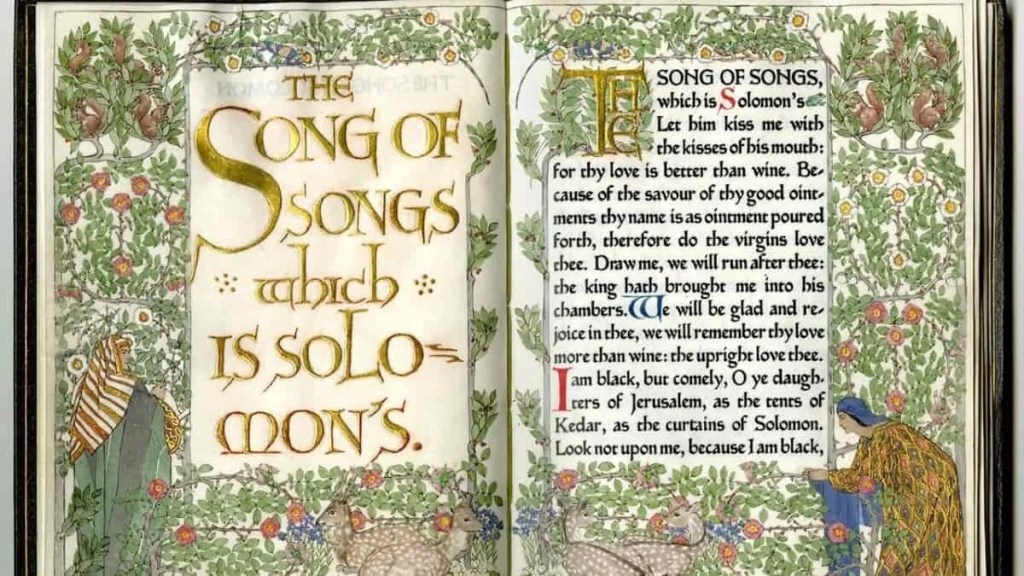 THE
SONG OF
SONGS
which
IS SOLO=
MON'S.
THE SONG OF SONGS,
which is Solomon's
Let him kiss me with
the kisses of his mouth:
for thy love is better than wine. Be-
cause of the savour of thy good oint-
ments thy name is as ointment poured
forth, therefore do the virgins love
thee. Draw me, we will run after thee:
the king hath brought me into his
chambers. We will be glad and re-
joice in thee, we will remember thy love
more than wine: the upright love thee.
I am black, but comely, O ye daugh-
ters of Jerusalem, as the tents of
Kedar, as the curtains of Solomon.
Look not upon me, because I am black,